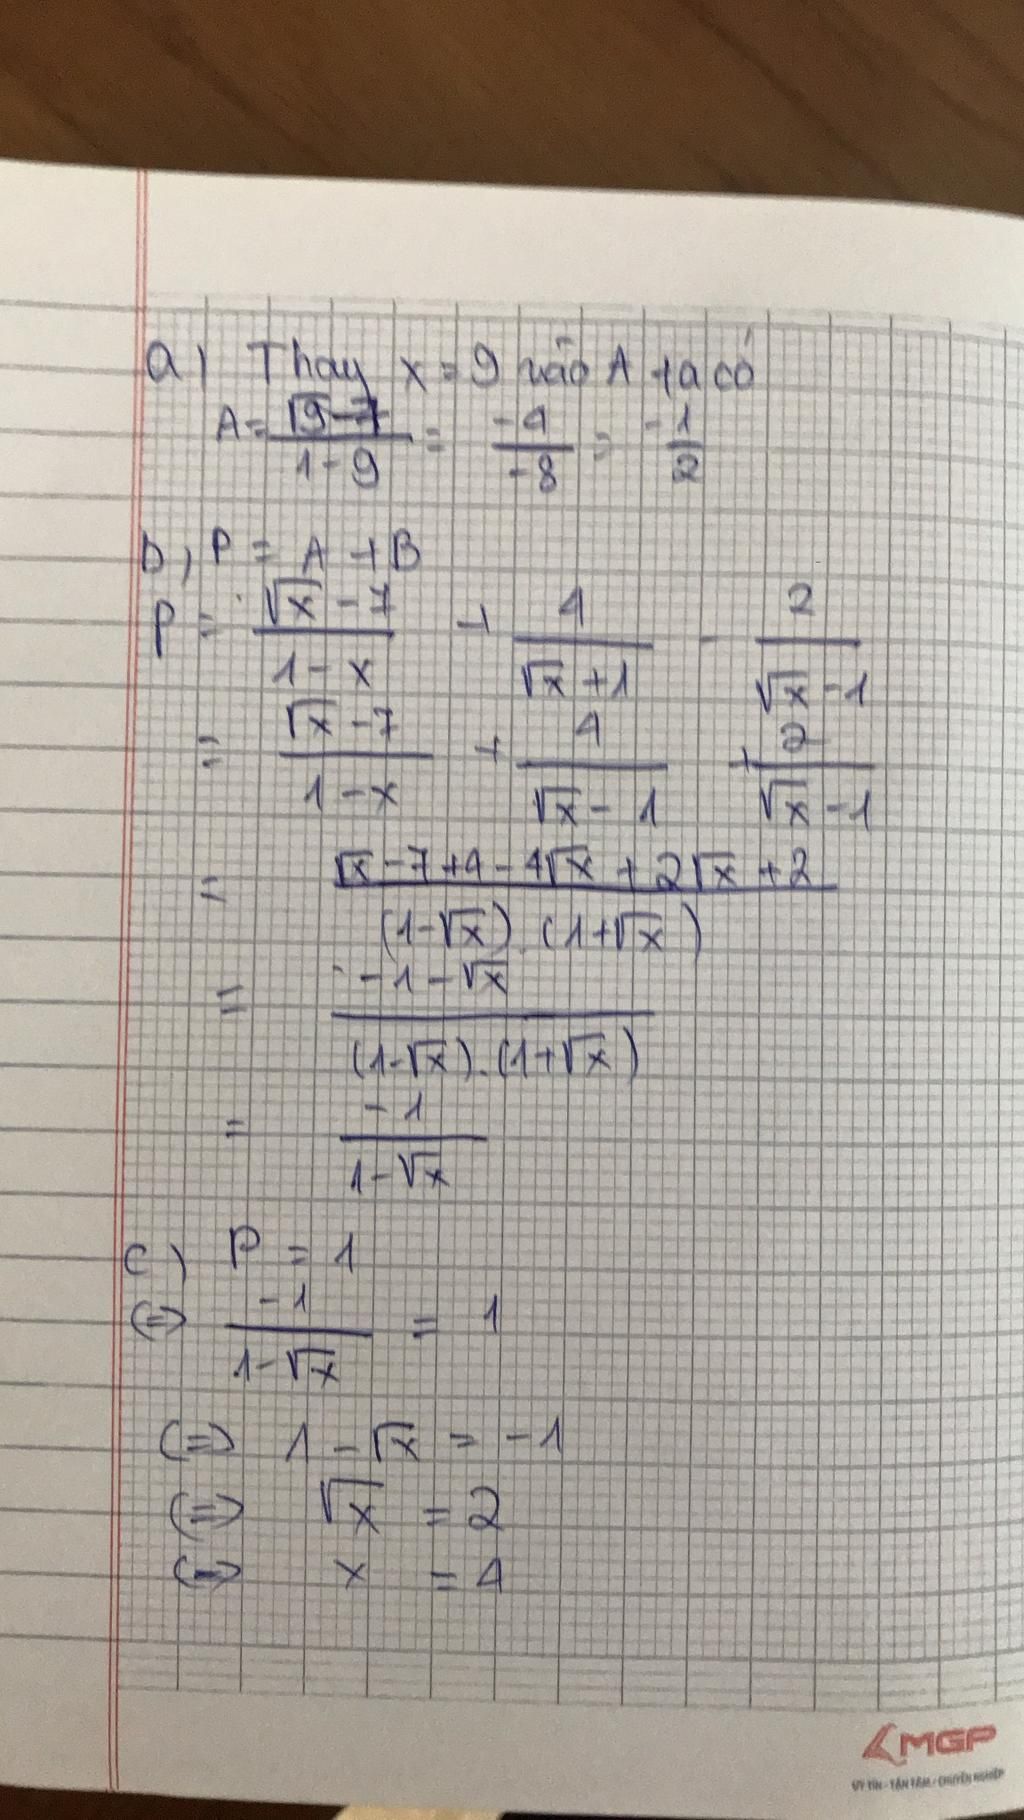 a) Thay x = 9 vào A ta có
A = (√9 - 7)/(1 - 9) = -4/-8 = -1/2
b) P = A + B
P = (√x - 7)/(1 - x) + 4/(√x + 1) - 2/(√x - 1)
= (√x - 7)/(1 - x) + 4/(√x - 1) + 2/(√x - 1)
= (√x - 7 + 4 - 4√x + 2√x + 2)/((1 - √x).(1 + √x))
= (-1 - √x)/((1 - √x).(1 + √x))
= -1/(1 - √x)
c) P = 1
(=) -1/(1 - √x) = 1
(=) 1 - √x = -1
(=) √x = 2
(=) x = 4
MGP
UY TÍN - TẬN TÂM / CHUYÊN NGHIỆP